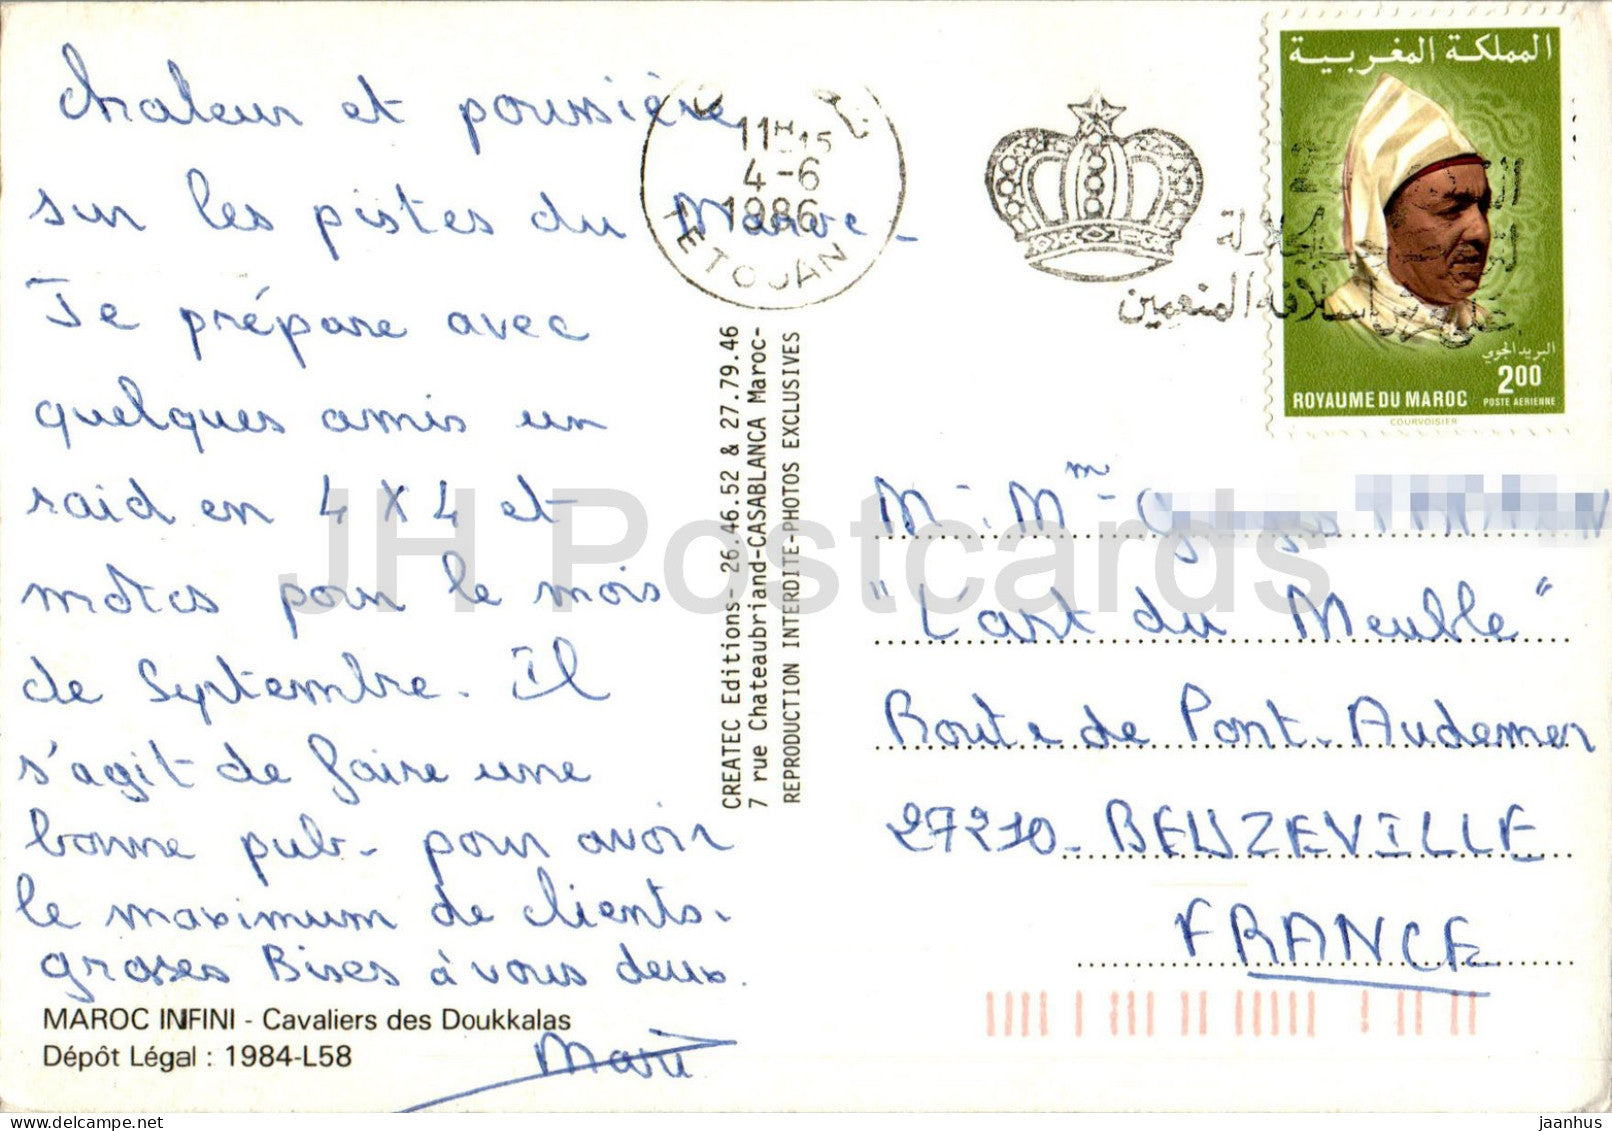 chaleur et poussière
sur les pistes du Maroc -
Je prépare avec
quelques amis un
raid en 4 X 4 et
motos pour le mois
de Septembre. Il
s'agit de faire une
bonne pub - pour avoir
le maximum de clients.
groses Bises à vous deux.
MAROC INFINI - Cavaliers des Doukkalas
Dépôt Légal : 1984-L58
CREATEC Editions- 26.46.52 & 27.79.46
7 rue Chateaubriand-CASABLANCA Maroc-
REPRODUCTION INTERDITE-PHOTOS EXCLUSIVES
11H 15
4-6
1986
TETOUAN
المملكة المغربية
البريد الجوي
2.00
ROYAUME DU MAROC POSTE AERIENNE
COURVOISIER
M - Mme
"L'art du Meuble"
Route de Pont-Audemer
27210 - BEUZEVILLE
FRANCE
JH Postcards
www.delcampe.net
jaanhus